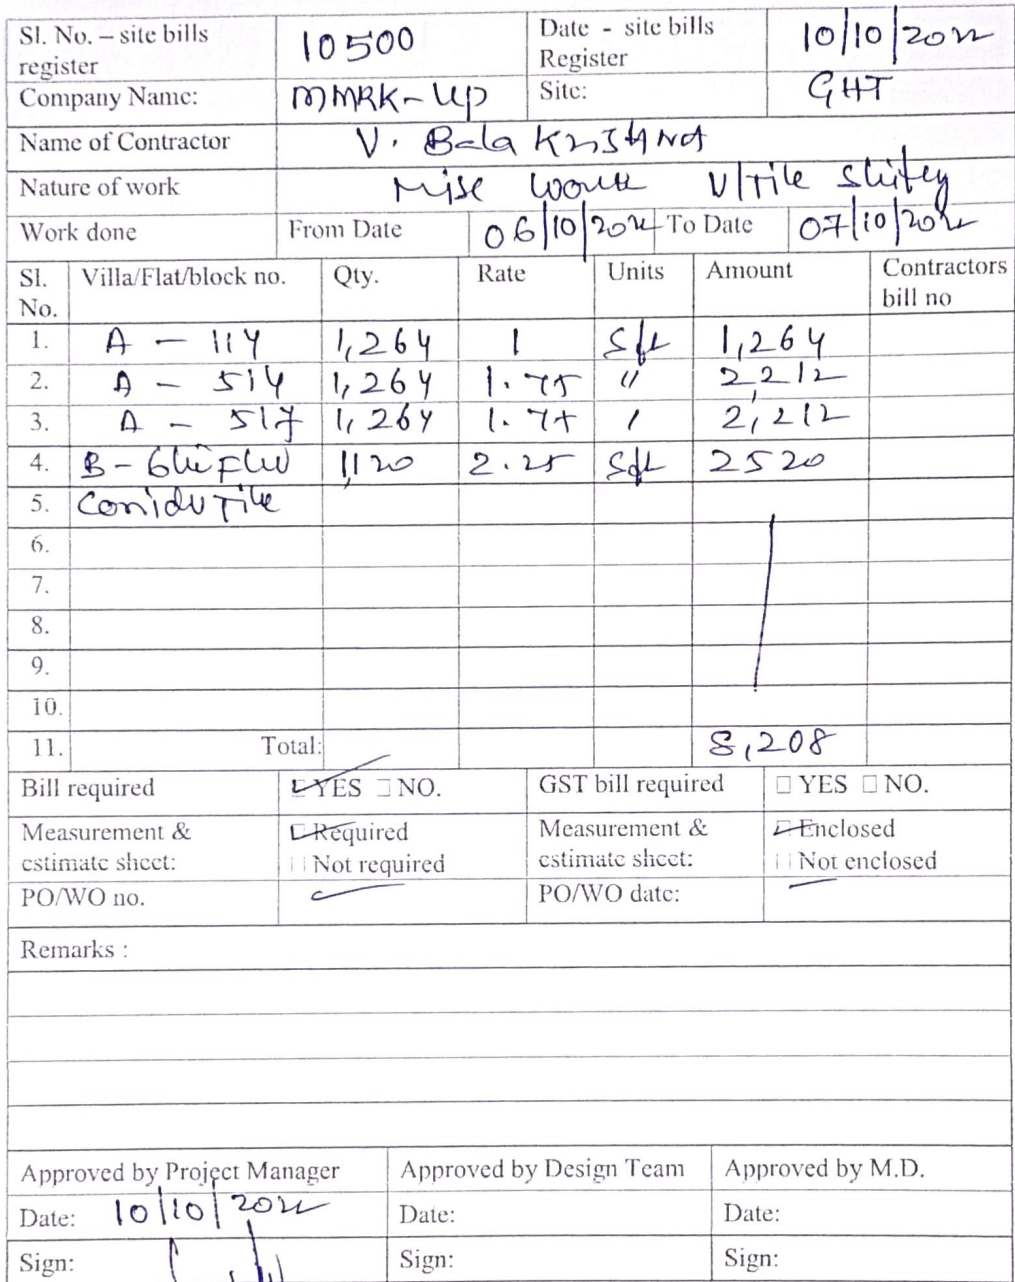 Sl. No. – site bills register 10500 Date - site bills Register 10/10/2022
Company Name: MMRK-Up Site: GHT
Name of Contractor V. Bala KrisHNA
Nature of work Misc work V/Tile Shifting
Work done From Date 06/10/2022 To Date 07/10/2022
Sl. No. Villa/Flat/block no. Qty. Rate Units Amount Contractors bill no
1. A - 114 1,264 1 Sft 1,264
2. A - 514 1,264 1.75 " 2,212
3. A - 517 1,264 1.75 " 2,212
4. B - 1,120 2.25 Sft 2520
5. Tile
6.
7.
8.
9.
10.
11. Total: 8,208
Bill required YES NO. GST bill required YES NO.
Measurement & estimate sheet: Required Not required Measurement & estimate sheet: Enclosed Not enclosed
PO/WO no. PO/WO date:
Remarks :
Approved by Project Manager Approved by Design Team Approved by M.D.
Date: 10/10/2022 Date: Date:
Sign: Sign: Sign: